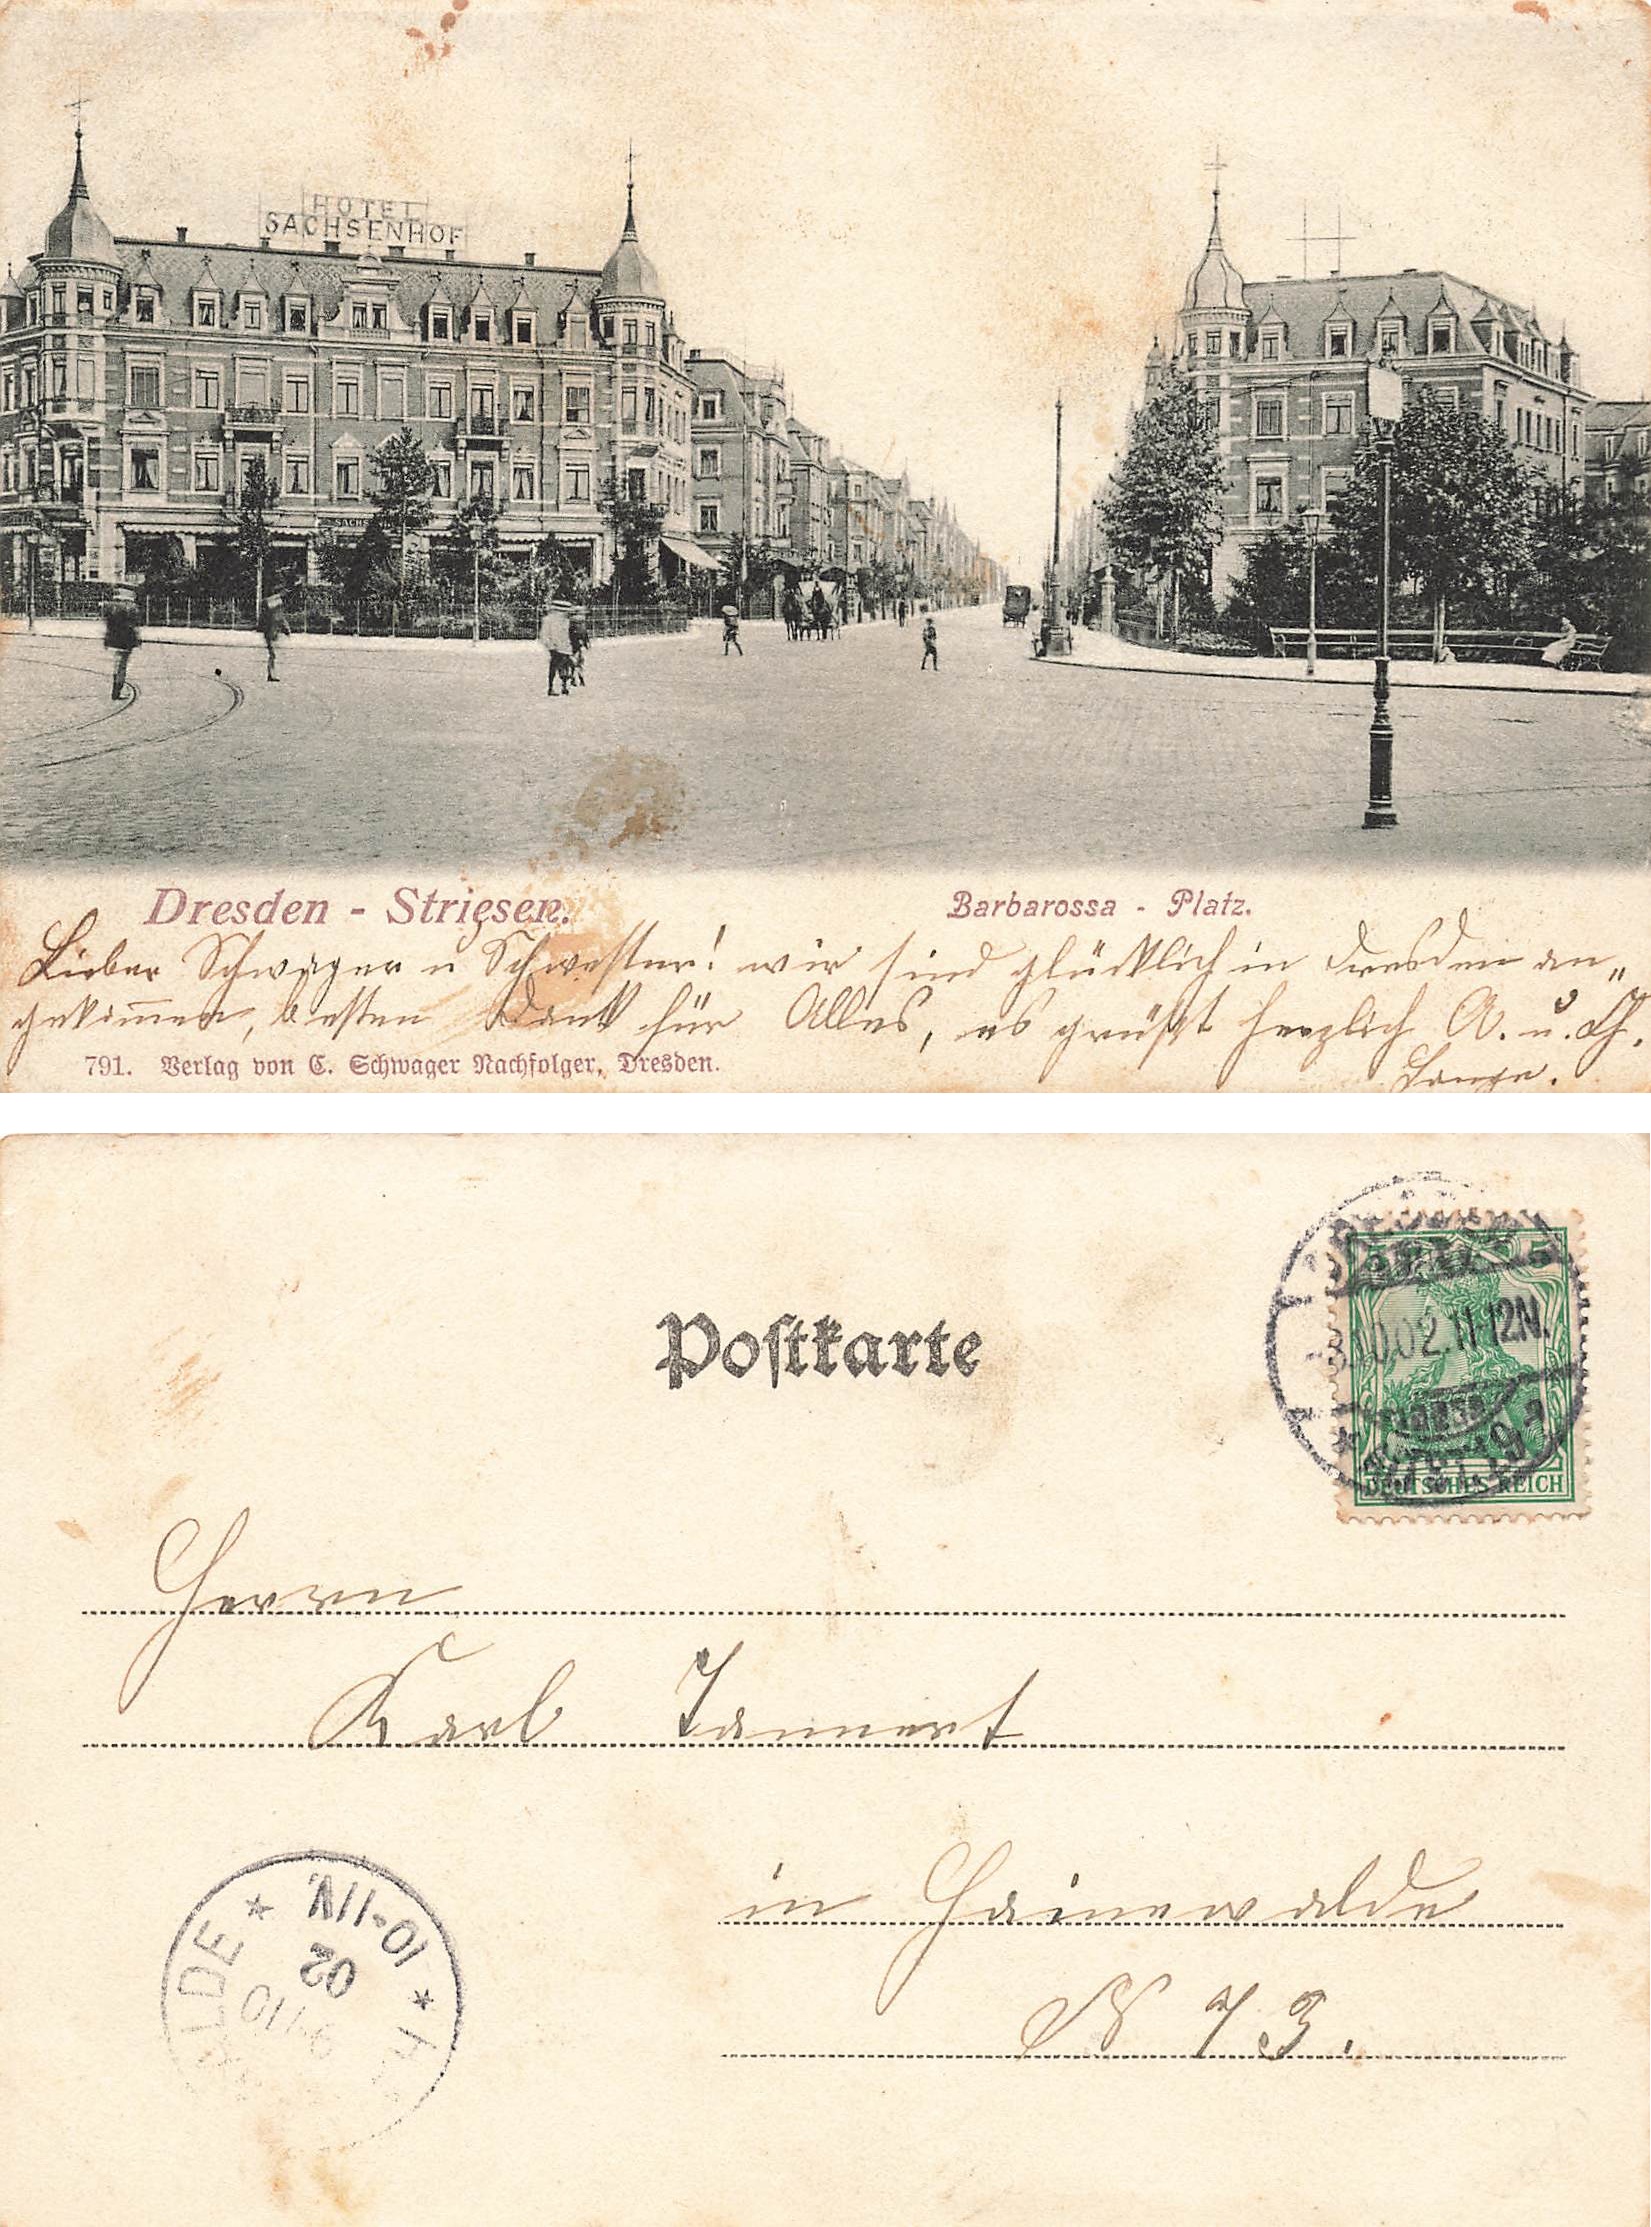 HOTEL
SACHSENHOF
SACHS
Dresden - Striesen.
Barbarossa - Platz.
Lieber Schwager u Schwester! wir sind glücklich in Dresden an„
gekom̅en, besten Dank für Alles, es grüßt herzlich A. u. Th.
Lange.
791. Verlag von C. Schwager Nachfolger, Dresden.
Postkarte
5 5
02.11-12N.
DEUTSCHES REICH
Herrn
Karl Tannert
in Hainewalde
N 73.
10-11N.
02